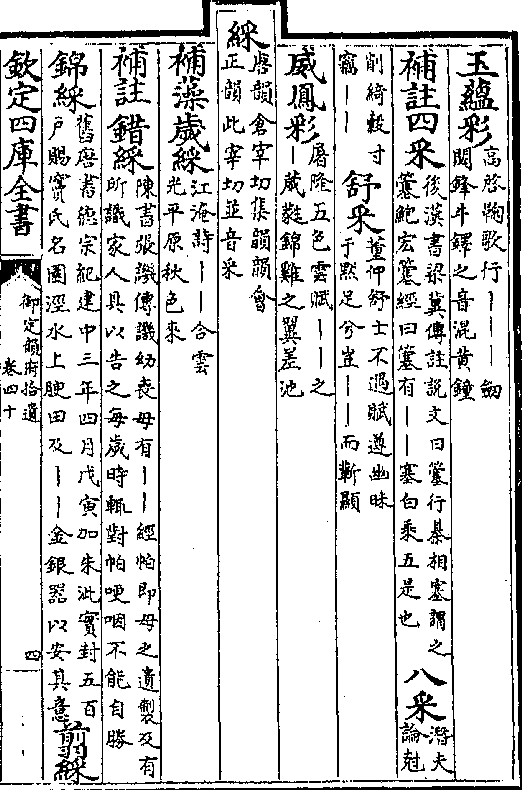 玉蘊彩高啓鞠歌行｜｜｜劒
閟鋒斗鐸之音混黃鐘
補註四采後漢書梁冀傳註說文曰簺行棊相塞謂之
簺鮑宏簺經曰簺有｜｜塞白乘五是也八采潛夫
論尅
削綺縠寸
竊｜｜舒采董仲舒士不遇賦遵幽昧
于黙足兮豈｜｜而蘄顯
威鳳彩唐滕五色雲賦｜｜之
｜葳蕤錦雞之翼差池
綵唐韻倉宰切集韻韻會
正韻此宰切並音采
補藻歲綵江淹詩｜｜合雲
光平原秋色來
補註錯綵陳書張譏傳譏幼喪母有｜｜經帕即母之遺製及有
所識家人具以告之每歲時輒對帕哽咽不能自勝
錦綵舊唐書德宗紀建中三年四月戊寅加朱泚實封五百
戶賜竇氏名園涇水上腴田及｜｜金銀器以安其意翦綵
欽定四庫全書
御定韻府拾遺
卷四十
四